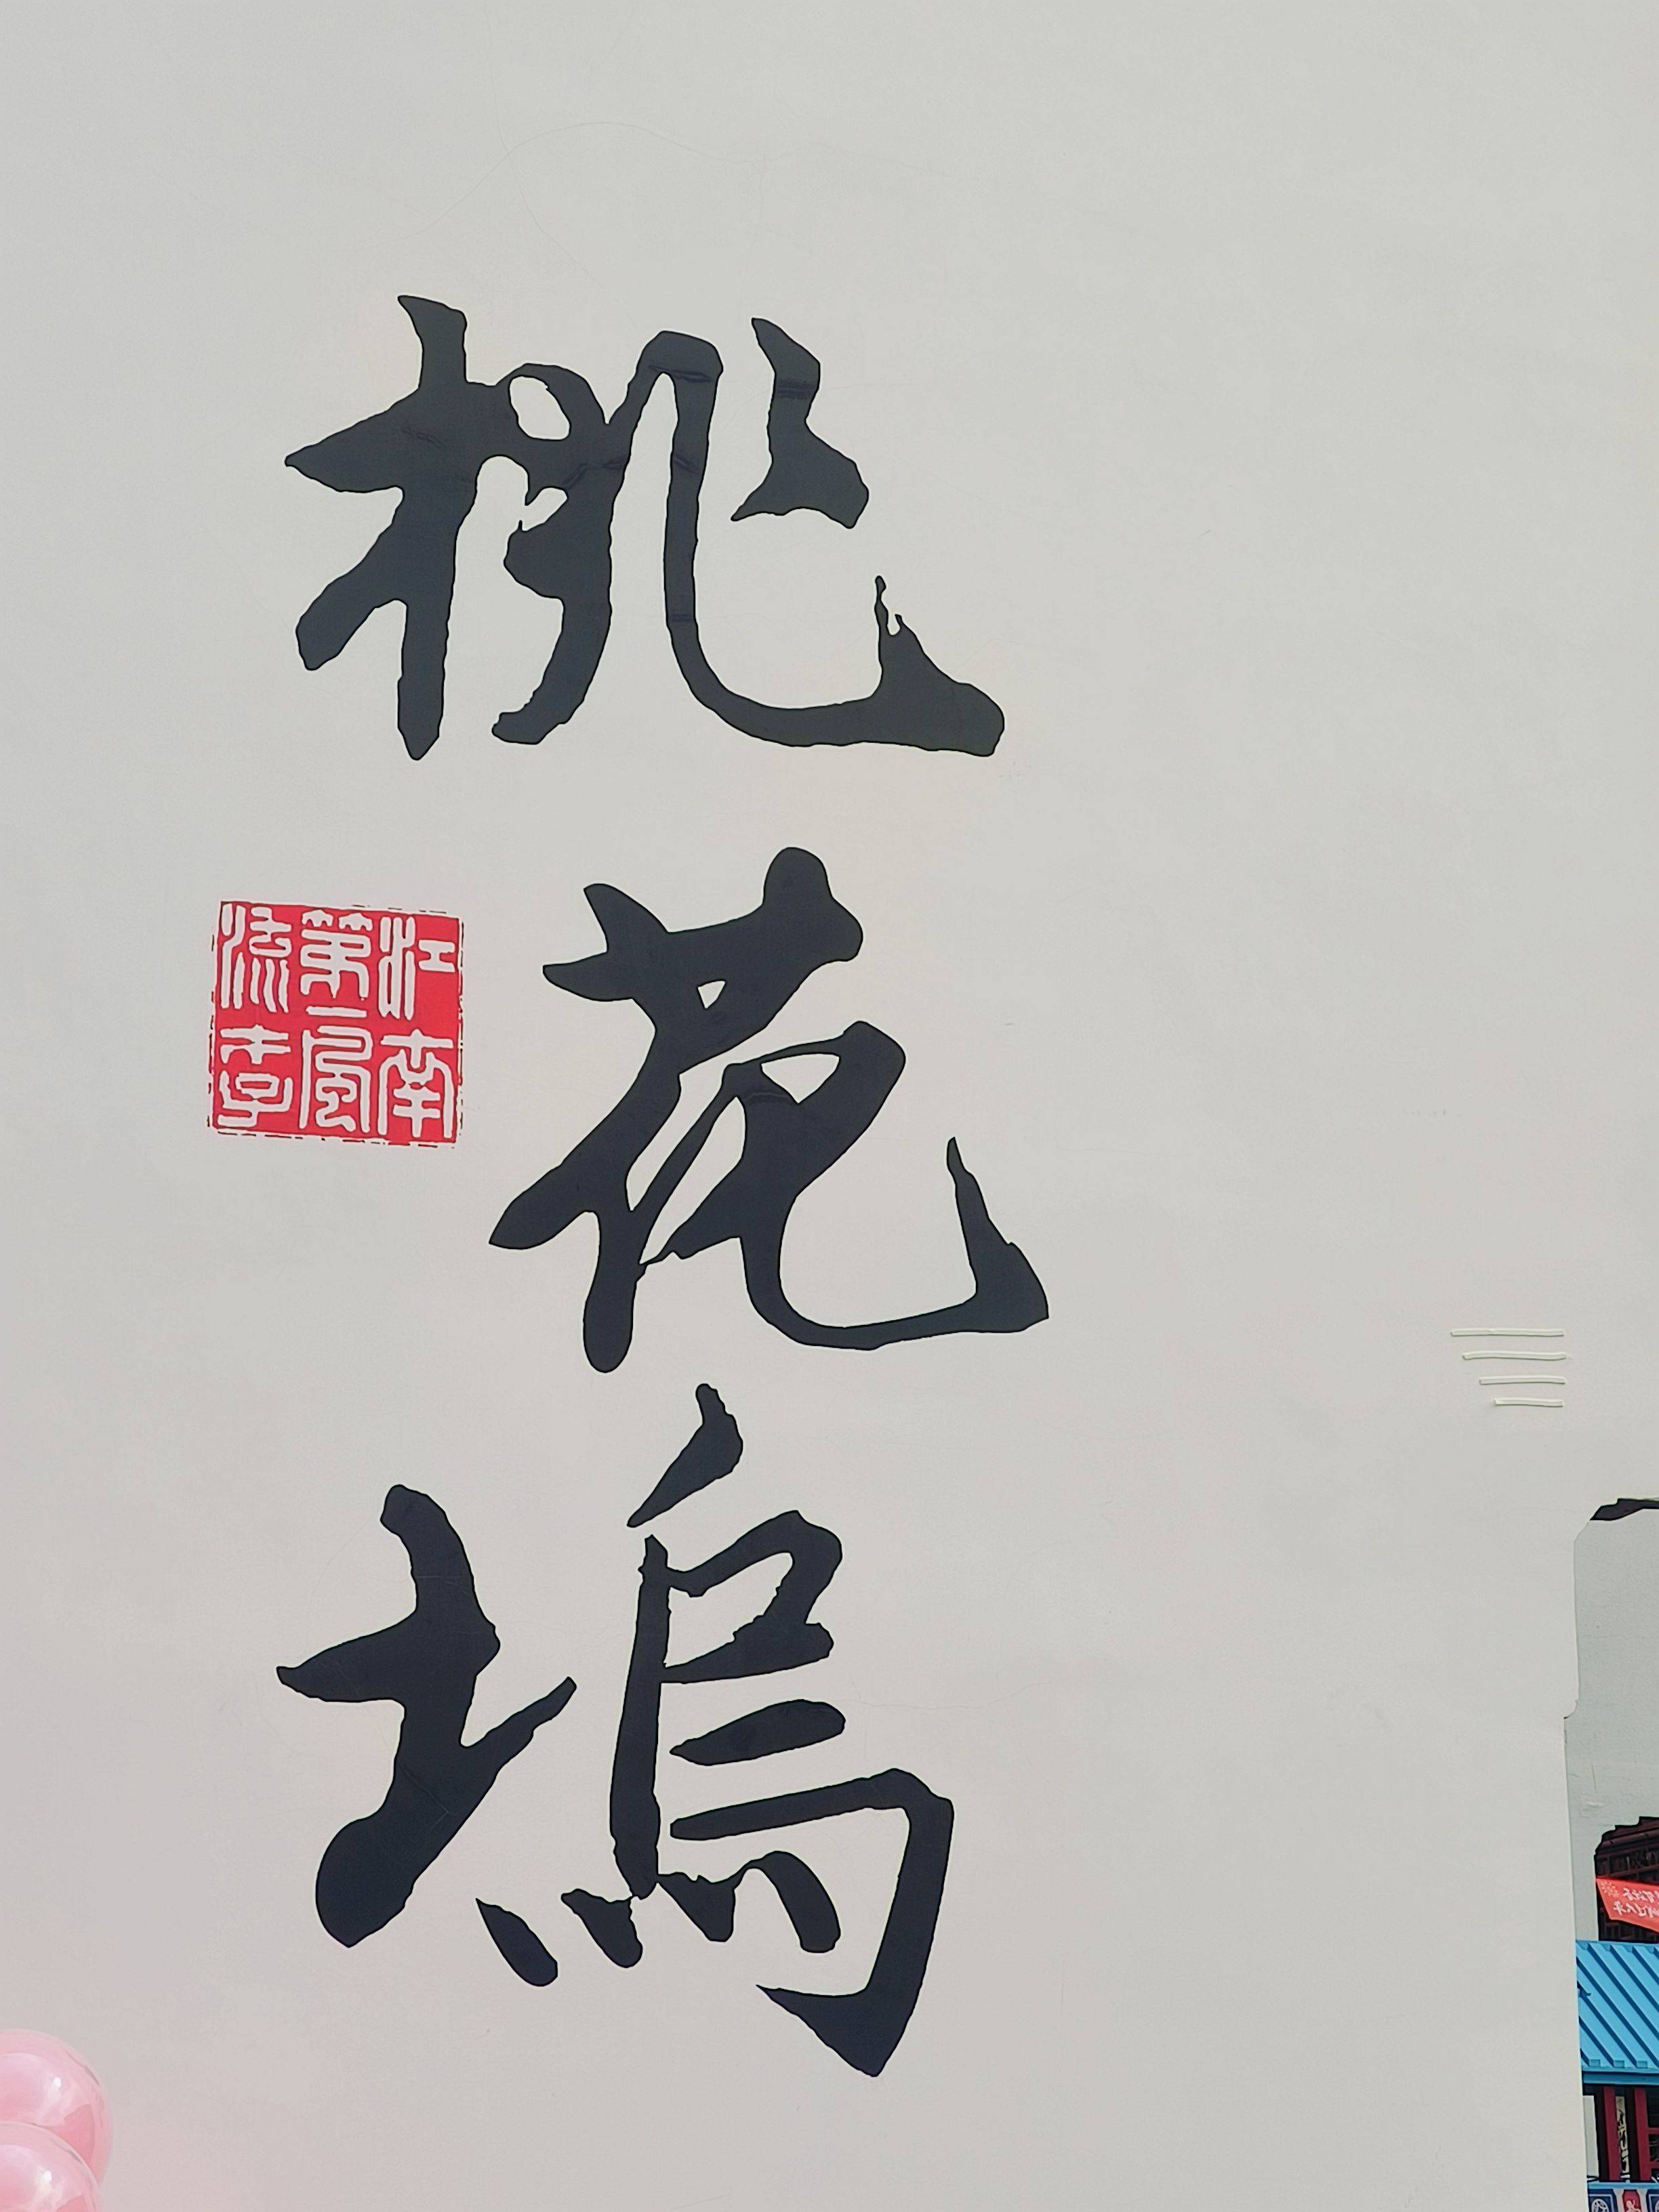 桃花塢
江南
第一風
流才子